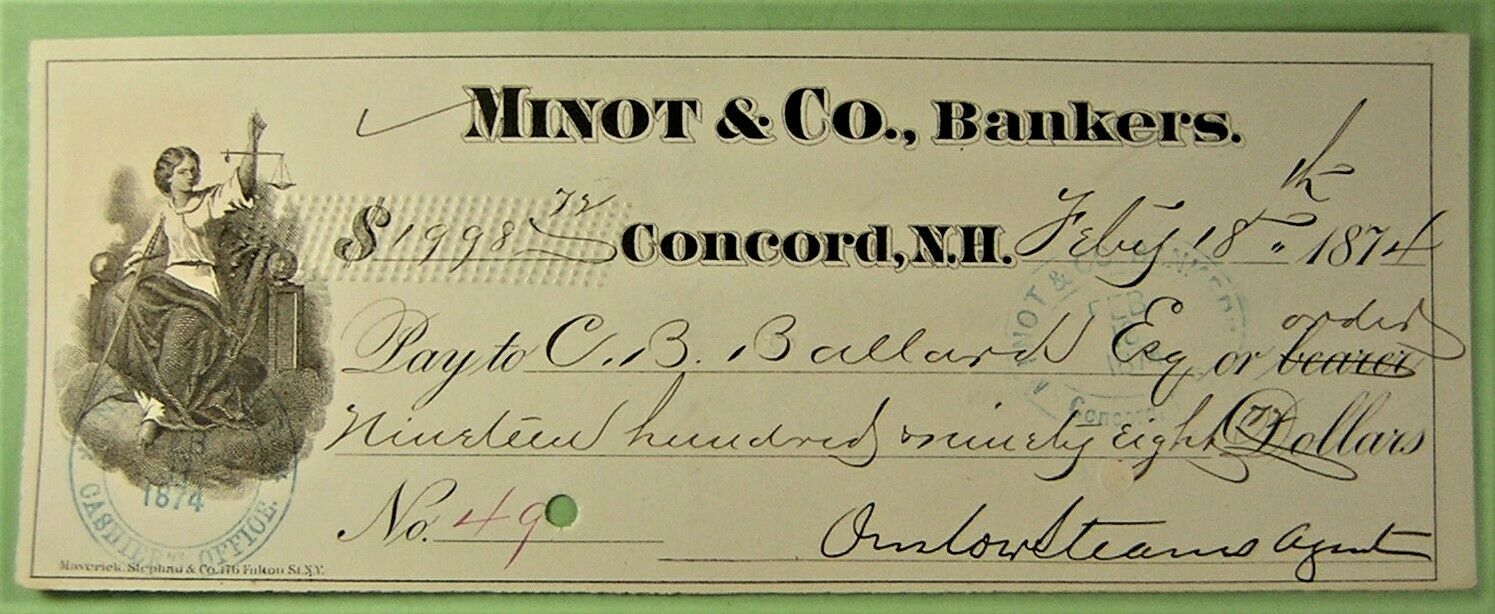 MINOT & CO., Bankers.
$1998 72 Concord, N.H. Feby 18th 1874
Pay to C. B. Ballard Esq or bearer order
Nineteen hundred & ninety eight 72 Dollars
No. 49
Onslow Stearns Agent
MINOT & CO. BANKERS
FEB
Concord
1874
CASHIER'S OFFICE
Maverick, Stephan & Co. 176 Fulton St. N.Y.